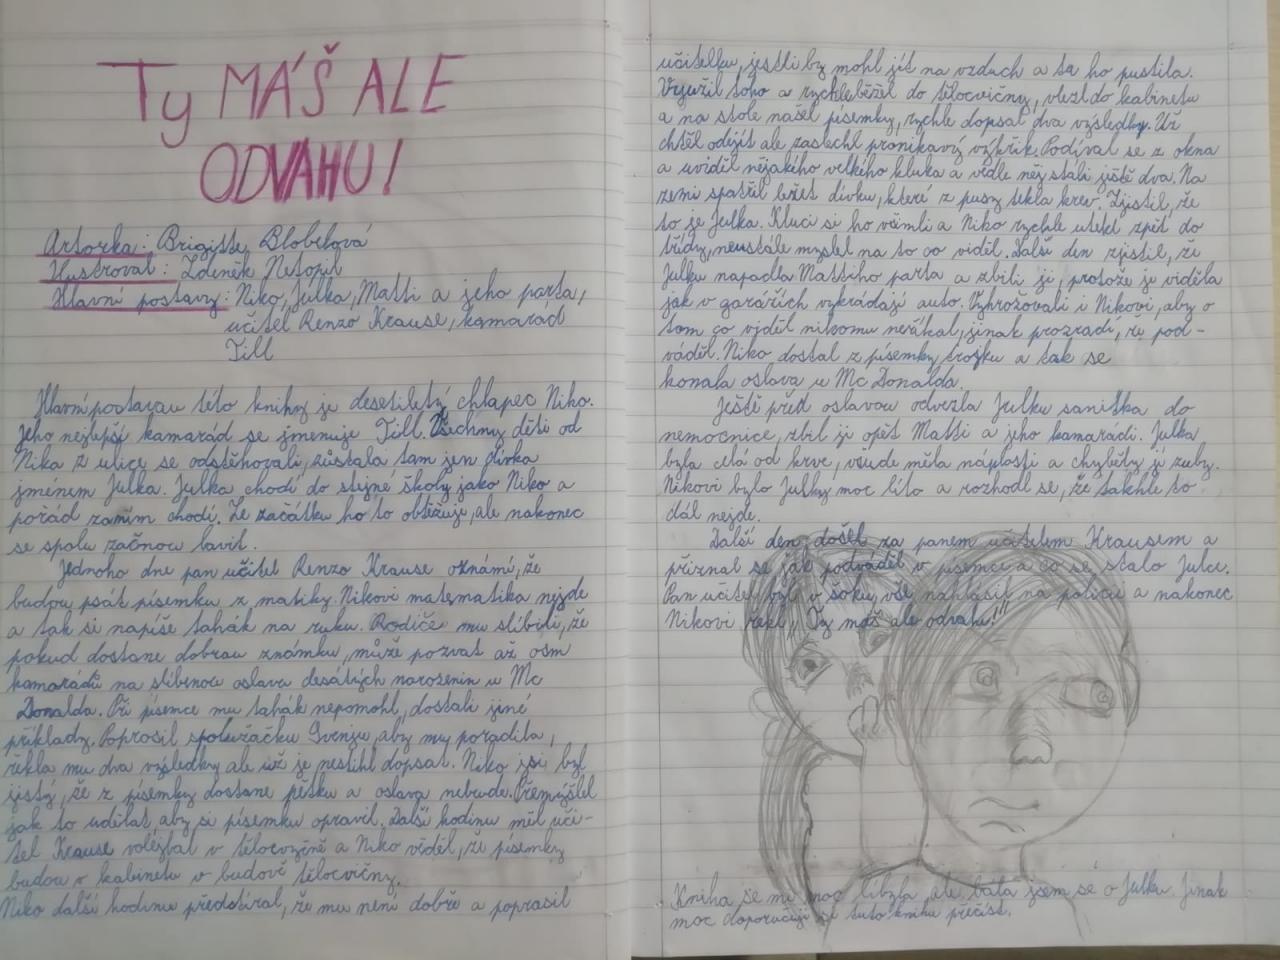 Ty MÁŠ ALE
ODVAHU!
Autorka: Brigitte Blobelová
Ilustroval: Zdeněk Netopil
Hlavní postavy: Niko, Julka, Matti a jeho parta,
učitel Renzo Krause, kamarád
Till
Hlavní postavou této knihy je desetiletý chlapec Niko.
Jeho nejlepší kamarád se jmenuje Till. Všechny děti od
Nika z ulice se odstěhovali, zůstala tam jen dívka
jménem Julka. Julka chodí do stejné školy jako Niko a
pořád za ním chodí. Ze začátku ho to obtěžuje, ale nakonec
se spolu začnou bavit.
Jednoho dne pan učitel Renzo Krause oznámí, že
budou psát písemku z matiky. Nikovi matematika nejde
a tak si napíše tahák na ruku. Rodiče mu slíbili, že
pokud dostane dobrou známku, může pozvat až osm
kamarádů na slíbenou oslavu desátých narozenin u Mc
Donalda. Při písemce mu tahák nepomohl, dostali jiné
příklady. Poprosil spolužačku Svenju, aby mu poradila,
řekla mu dva výsledky ale už je nestihl dopsat. Niko si byl
jistý, že z písemky dostane pětku a oslava nebude. Přemýšlel
jak to udělat aby si písemku opravil. Další hodinu měl uči-
tel Krause volejbal v tělocvičně a Niko věděl, že písemky
budou v kabinetu v budově tělocvičny.
Niko další hodinu předstíral, že mu není dobře a poprosil
učitelku, jestli by mohl jít na vzduch a ta ho pustila.
Využil toho a rychle běžel do tělocvičny, vlezl do kabinetu
a na stole našel písemky, rychle dopsal dva výsledky. Už
chtěl odejít ale zaslechl pronikavý výkřik. Podíval se z okna
a uviděl nějakého velkého kluka a vedle něj stáli ještě dva. Na
zemi spatřil ležet dívku, které z pusy tekla krev. Zjistil, že
to je Julka. Kluci si ho všimli a Niko rychle utekl zpět do
třídy, neustále myslel na to co viděl. Další den zjistil, že
Julku napadla Mattiho parta a zbili ji, protože je viděla
jak v garážích vykrádají auto. Vyhrožovali i Nikovi, aby o
tom co viděl nikomu neříkal, jinak prozradí, že pod-
váděl. Niko dostal z písemky trojku a tak se
konala oslava u Mc Donalda.
Ještě před oslavou odvezla Julku sanitka do
nemocnice, zbil ji opět Matti a jeho kamarádi. Julka
byla celá od krve, všude měla náplasti a chyběly jí zuby.
Nikovi bylo Julky moc líto a rozhodl se, že takhle to
dál nejde.
Další den došel za panem učitelem Krausem a
přiznal se jak podváděl v písemce a co se stalo Julce.
Pan učitel byl v šoku, vše nahlásil na policii a nakonec
Nikovi řekl, "Ty máš ale odvahu!"
Kniha se mi moc líbyla ale bála jsem se o Julku. Jinak
moc doporučuji si tuto knihu přečíst.